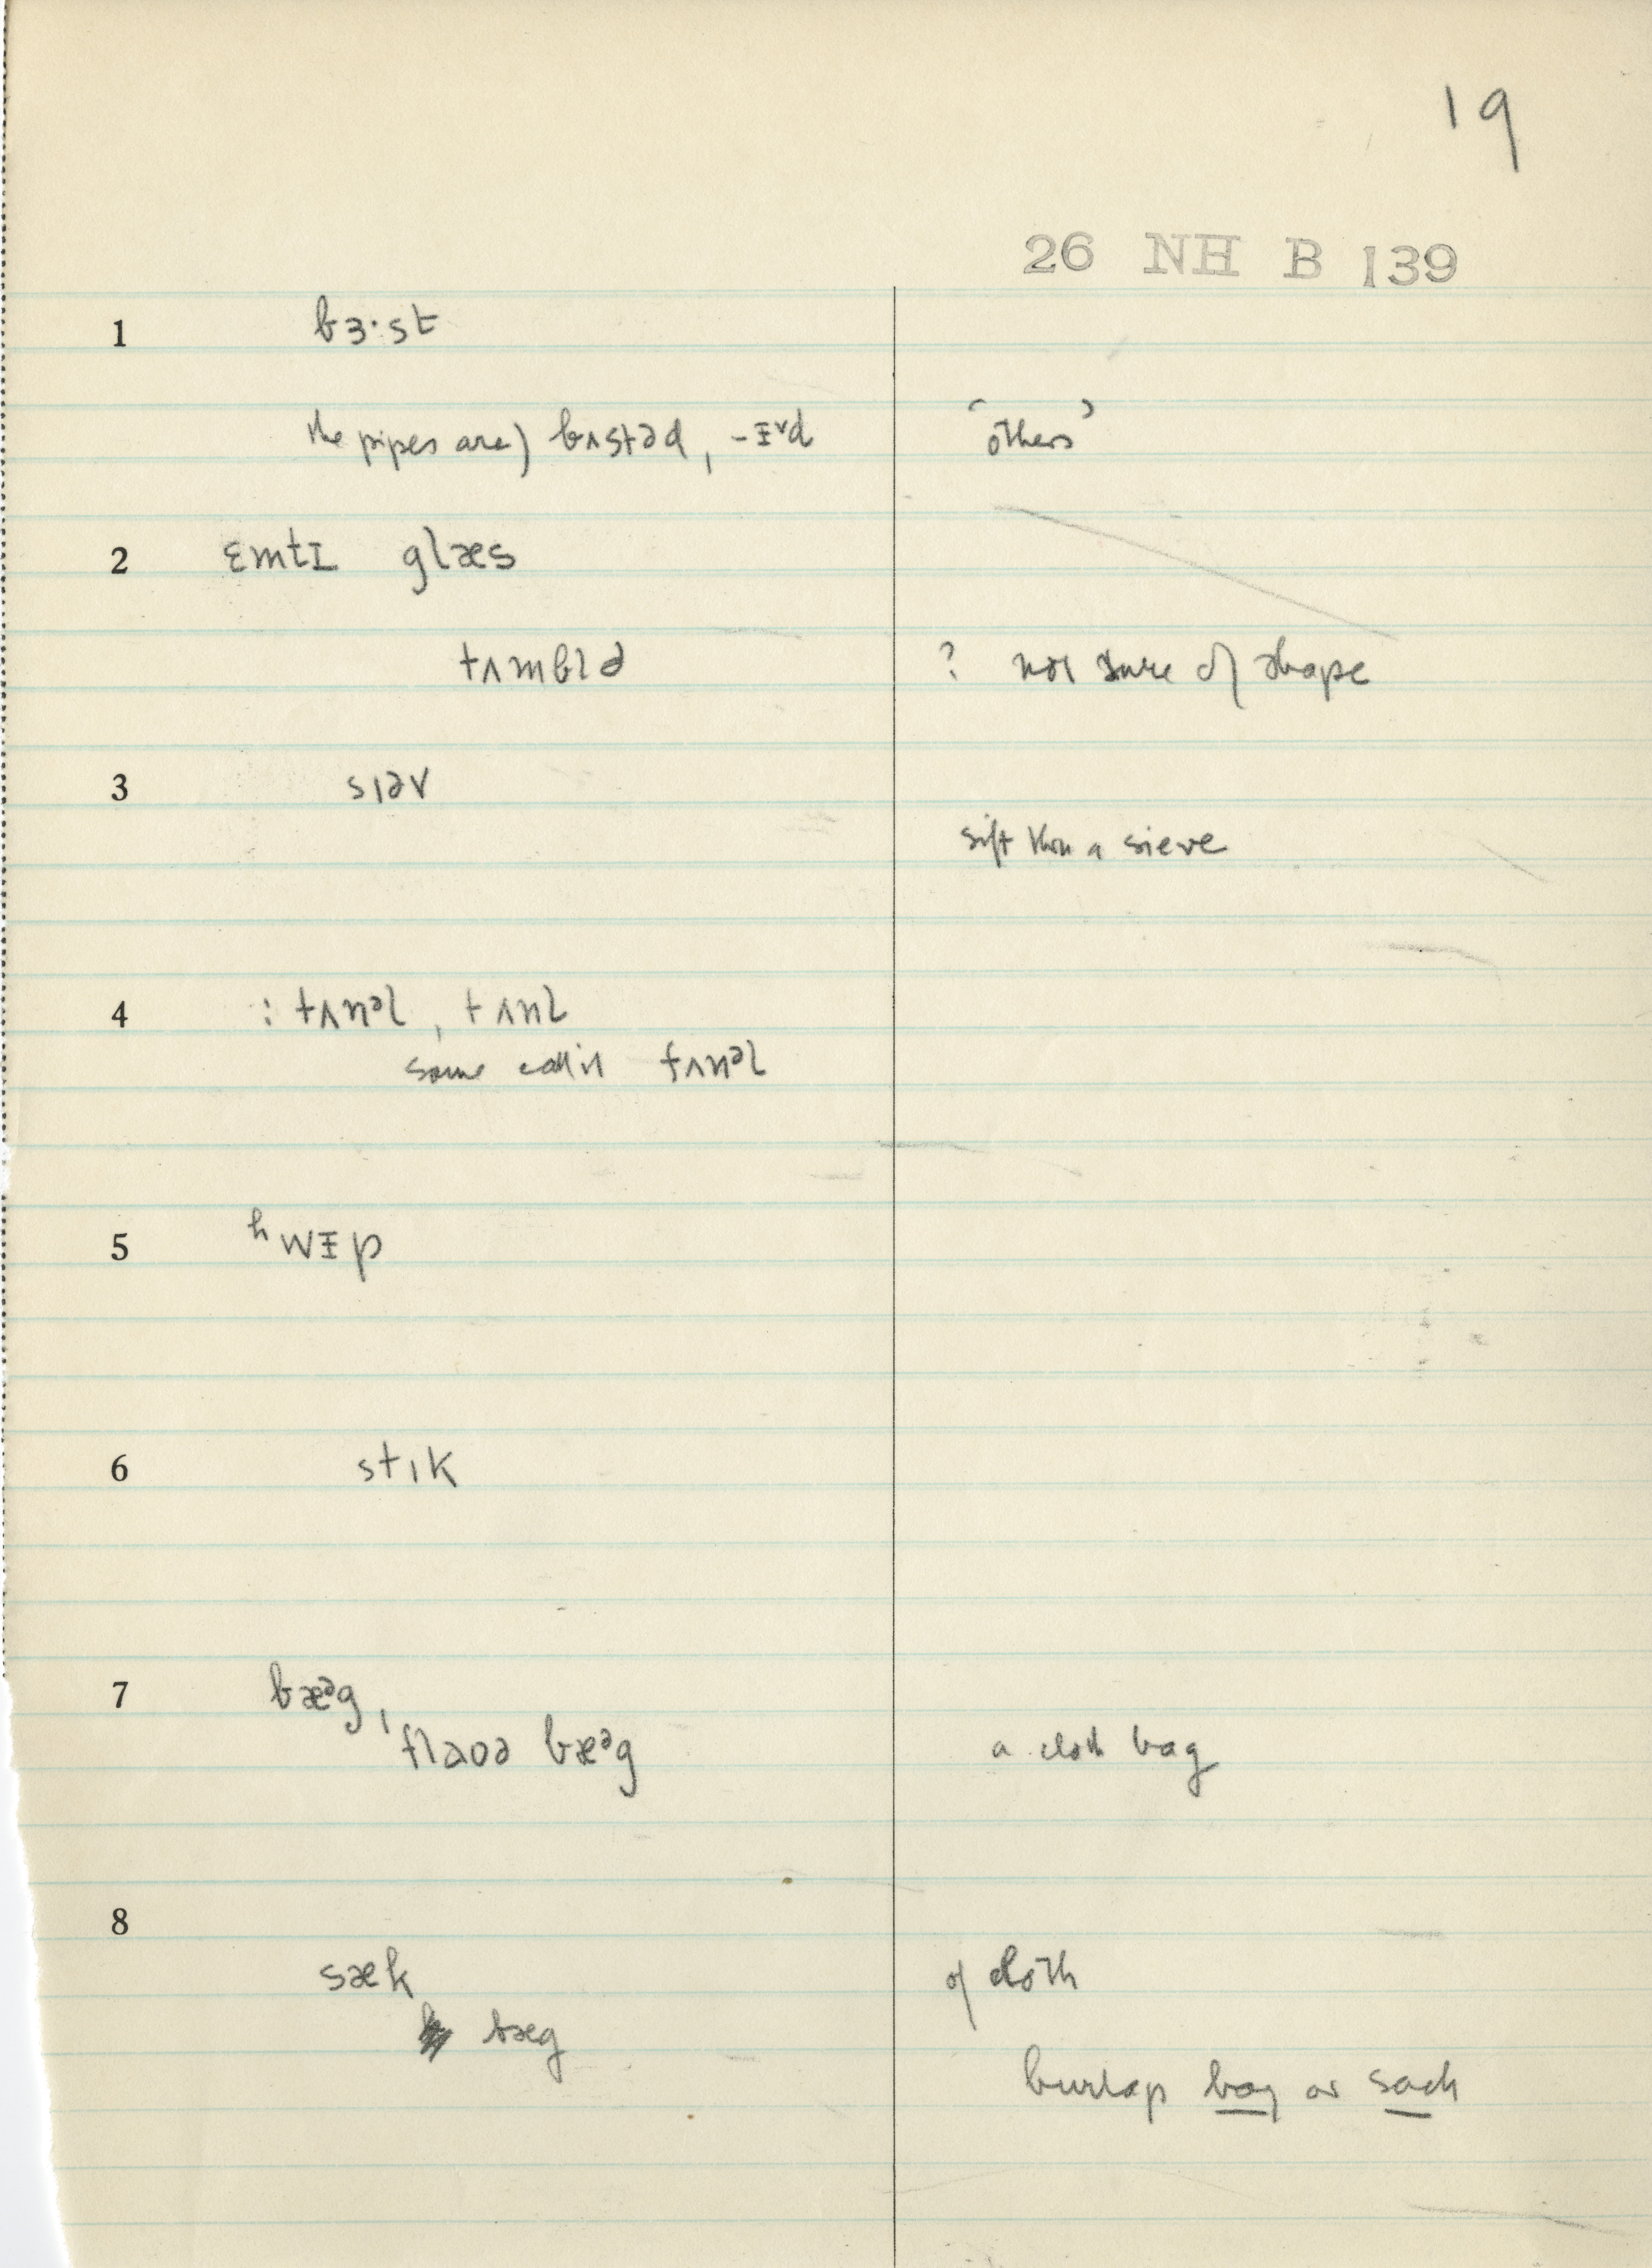 19
26 NH B 139
1 bɜ·st
the pipes are) bʌstəd, -ɪᵛd 'others'
2 ɛmtɪ glæs
tʌmblə ? not sure of shape
3 sɪəv
sift thru a sieve
4 : tʌnᵊl, tʌnl
some call it fʌnᵊl
5 ʰwɪp
6 stɪk
7 bæᵊg,
flaʊə bæᵊg a cloth bag
8
sæk of cloth
bæg
burlap bag or sack